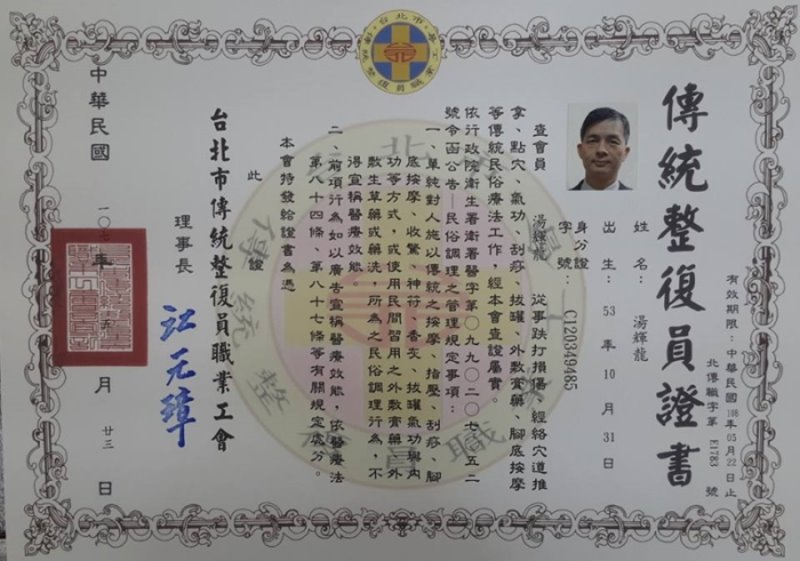 台北市傳統整復員職業工會
傳統整復員證書
有效期限：中華民國108年05月22日止
北傳職字第E1783號
姓名：湯輝龍
出生：53年10月31日
身分證字號：C120349485
查會員 湯輝龍 從事跌打損傷、經絡穴道推
拿、點穴、氣功、刮痧、拔罐、外敷膏藥、腳底按摩
等傳統民俗療法工作，經本會查證屬實。
依行政院衛生署衛署醫字第○九九○二○七○五二
號令函公告—民俗調理之管理規定事項：
一、單純對人施以傳統之按摩、指壓、刮痧、腳
底按摩、收驚、神符、香灰、拔罐氣功與內
功等方式，或使用民間習用之外敷膏藥、外
敷生草藥或藥洗，所為之民俗調理行為，不
得宣稱醫療效能。
二、前項行為如以廣告宣稱醫療效能，依醫療法
第八十四條、第八十七條等有關規定處分。
本會特發給證書為憑
此證
台北市傳統整復員職業工會
理事長 江元璋
中華民國一○七年五月廿三日